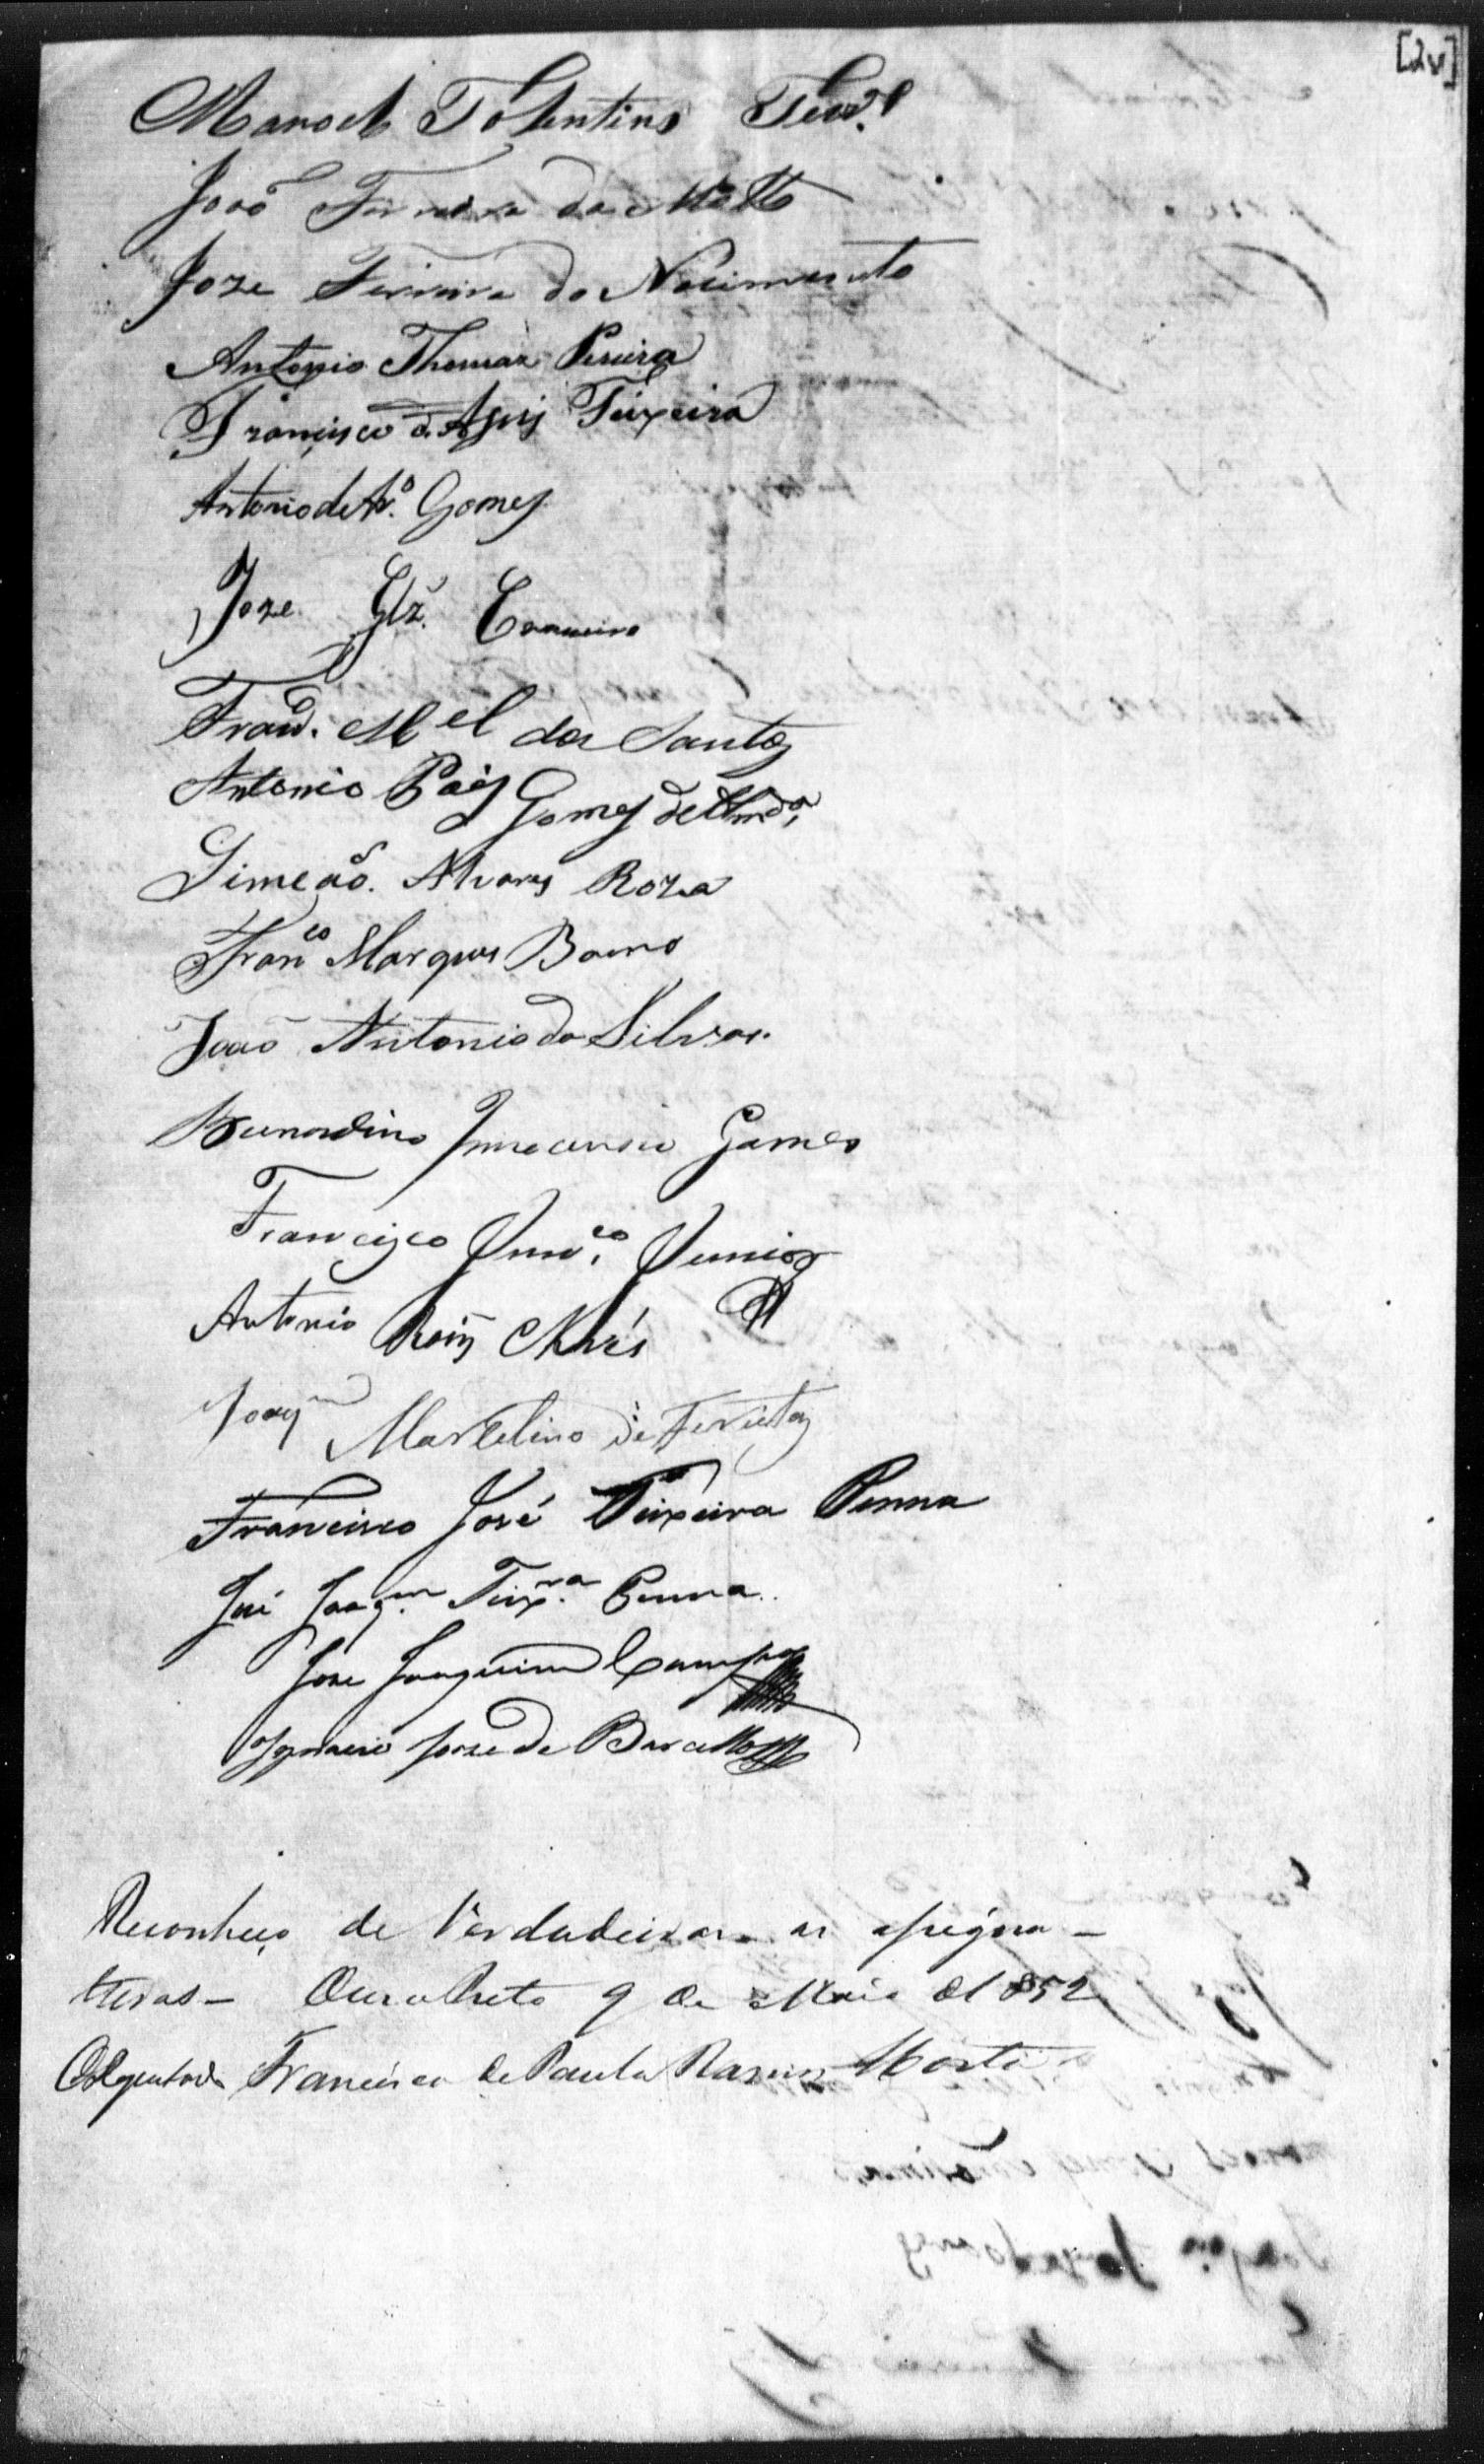 [2v]
Manoel Tolentino
João Ferreira da Motta
Joze Ferreira do Nacimento
Antonio Thomaz Pereira
Francisco d. Assis Teixeira
Antonio de Gomes
Joze Glz. Carneiro
Fran.co M.el dos Santos
Antonio Paes Gomes de Almd.a
Simeão. Alvares Roza
Fran.co Marques
João Antonio da Silva.
Bernardino Innocencio Gomes
Francisco Junior
Antonio Roiz Alves
Joaq.m Marcelino de Freitas
Francisco José Teixeira Penna
José Joaq.m Teix.ra Penna.
José Joaquim Campos
Ignacio Jose de Barcellos
Reconheço de Verdadeiras as assigna-
turas - Ouro Preto 9 de Maio d1852
Francisco de Paula